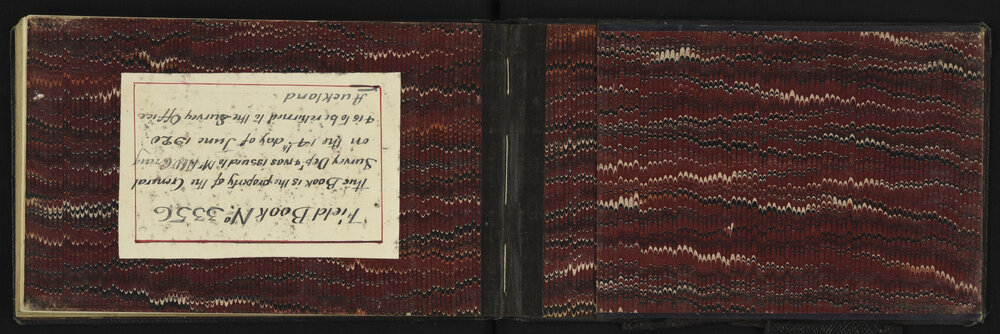 Field Book No. 3356
This Book is the property of the General
Survey Dep't & was issued to Mr
on the 14th day of June 1920.
& is to be returned to the Survey Office
Auckland.